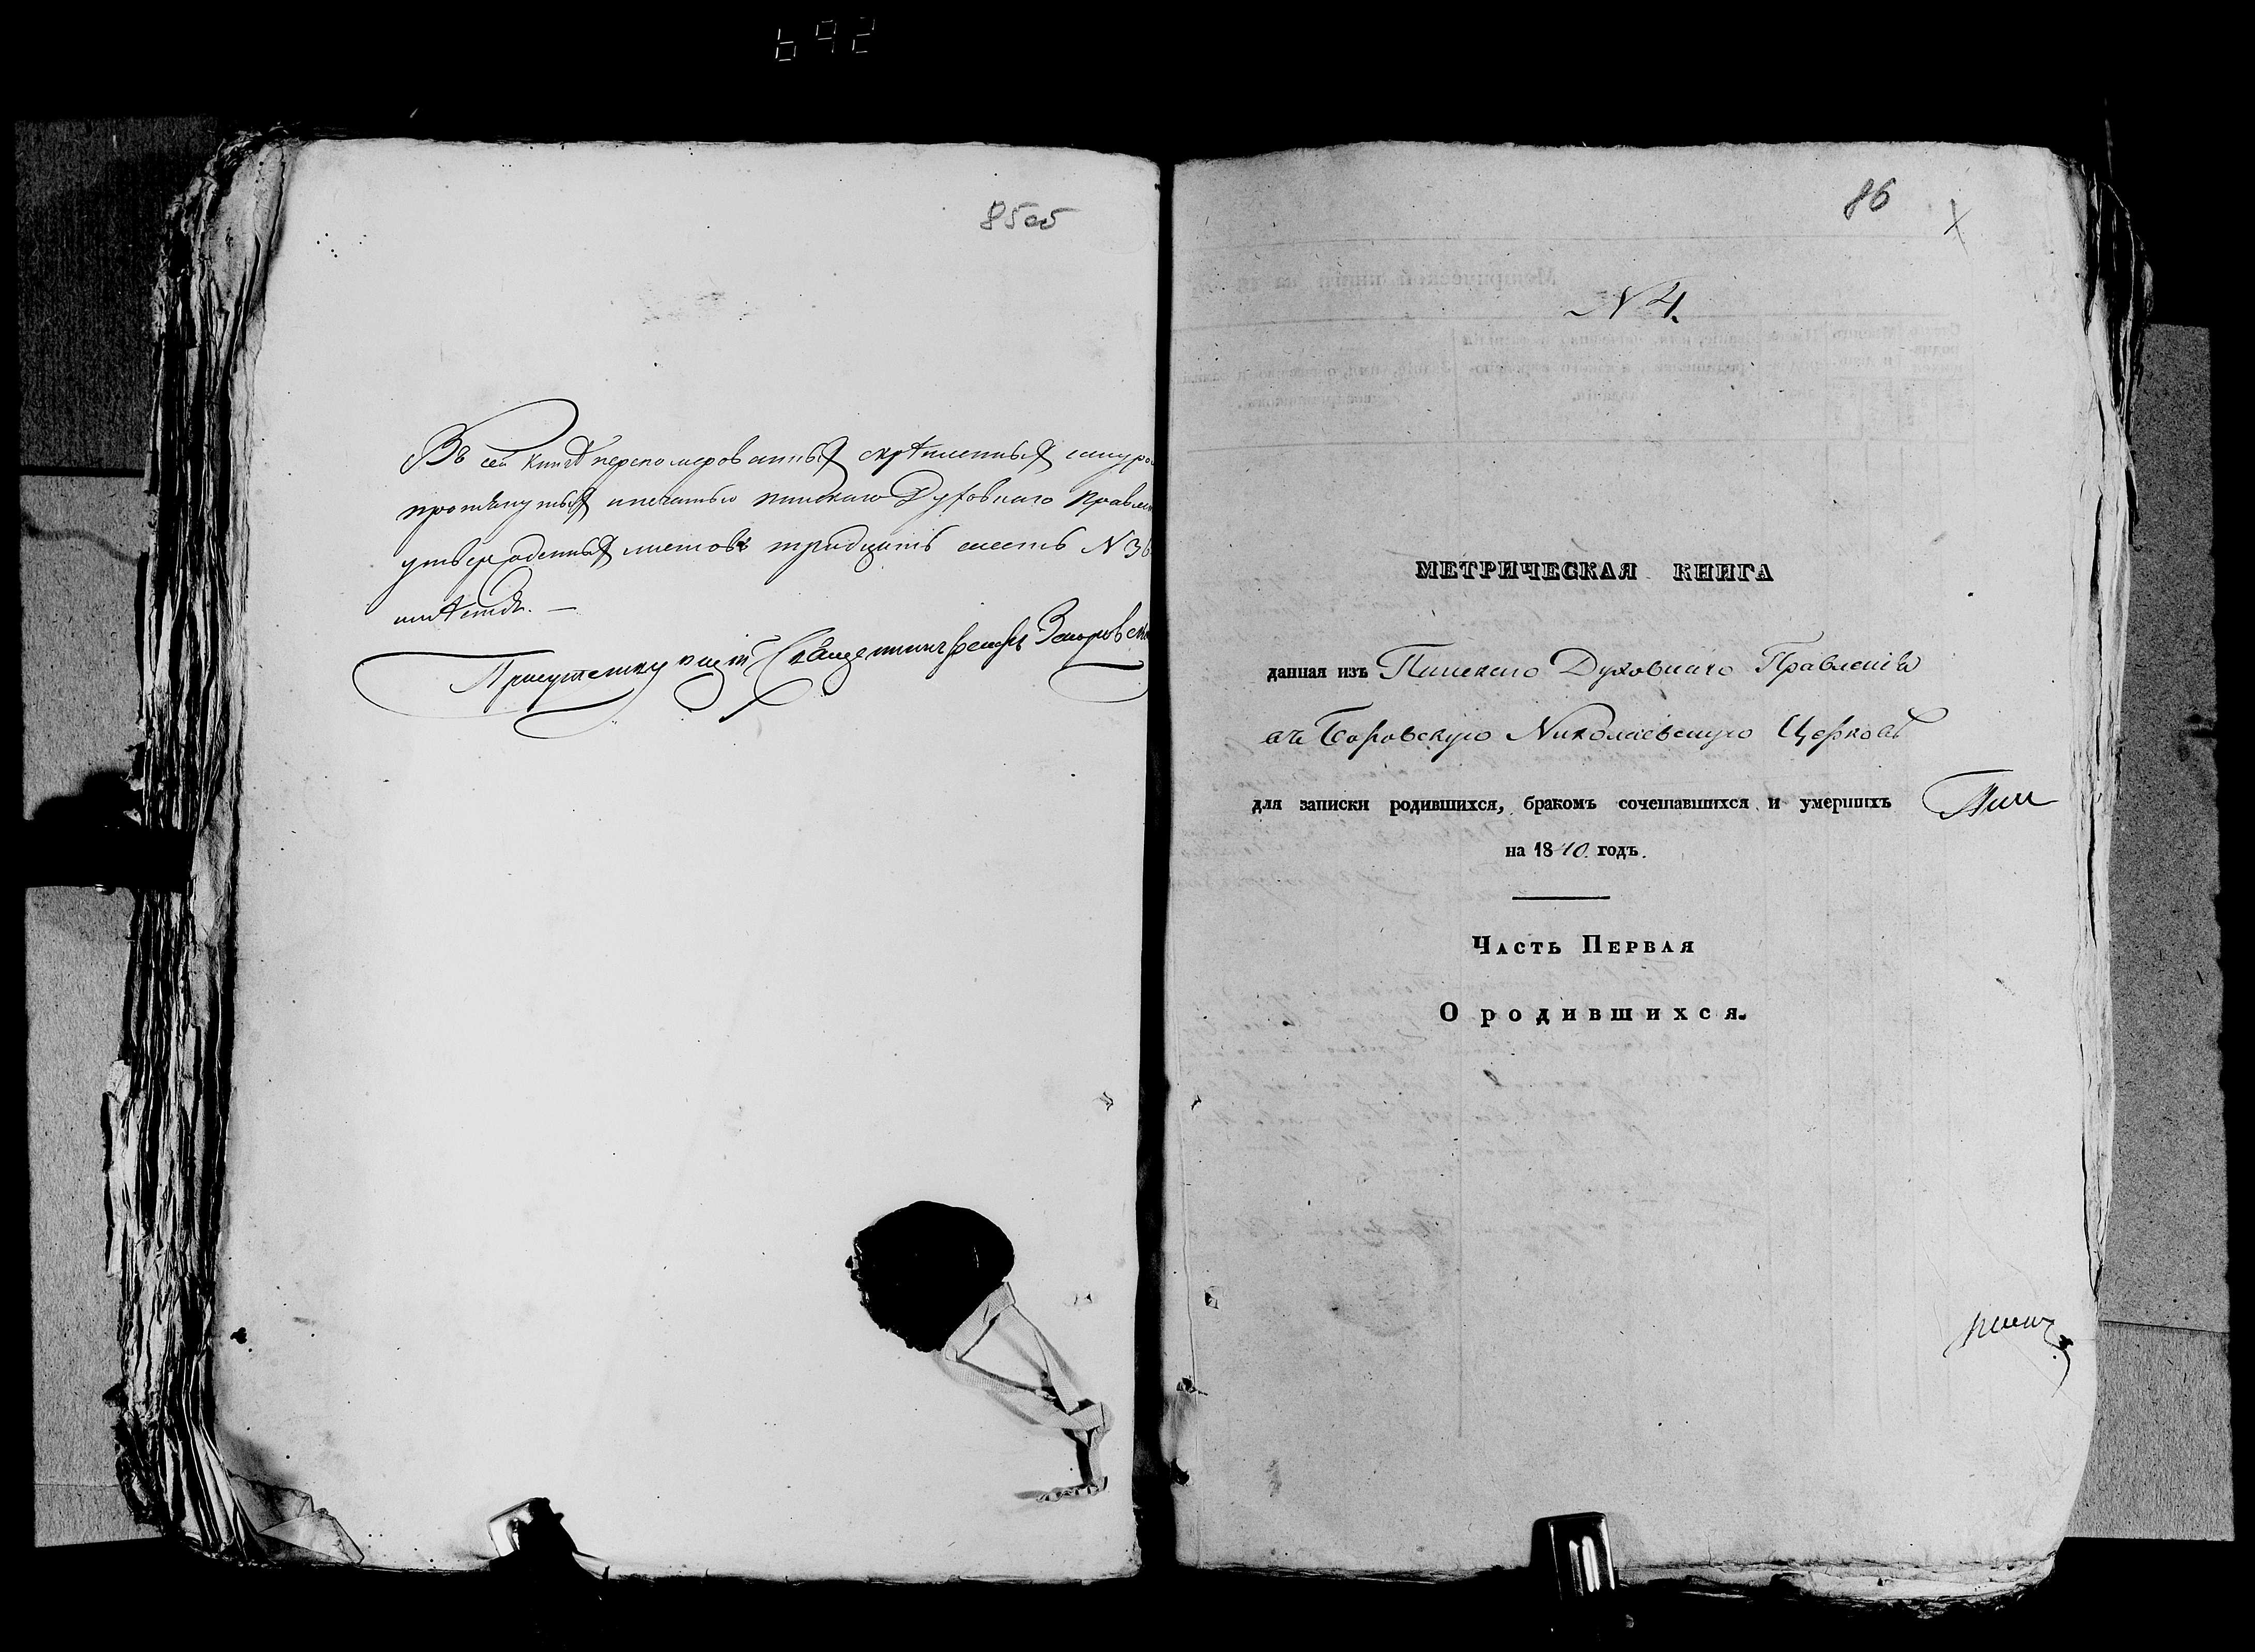 692
85об
Въ сей книгѣ перенумерованныя скрѣпленныя шнуро
протянутыя и печатью пинскаго Духовнаго Правле
утвержденныя листовъ тридцать шесть N 36
Присутствующій Священник
86
N 4.
МЕТРИЧЕСКАЯ КНИГА
данная изъ Пинскаго Духовнаго Правленія
въ Боровскую Николаевскую Церковь
для записки родившихся, бракомъ сочетавшихся и умершихъ
на 1840. годъ.
Часть Первая
О родившихся.